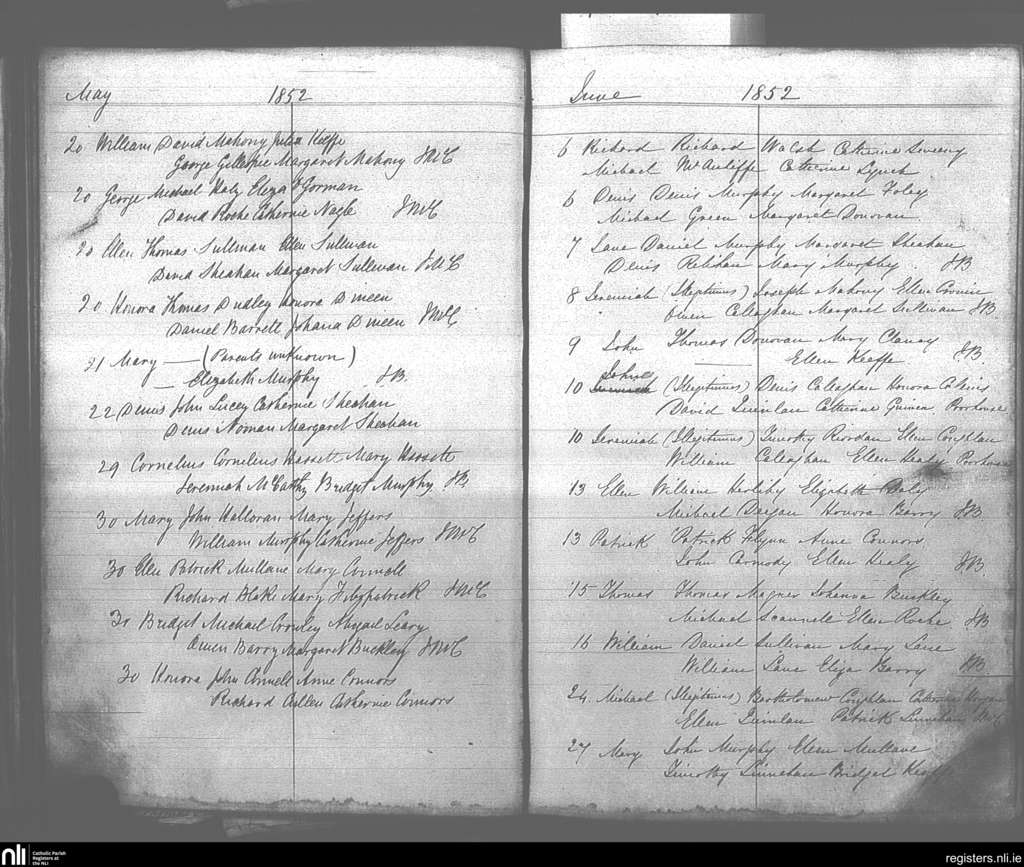 May 1852
20 William David Mahony Julia Keffe
George Gillespie Margaret Mahony JMcC
20 George Michael Eliza O'Gorman
David Roche Catherine Nagle JMcC
20 Ellen Thomas Sullivan Ellen Sullivan
David Sheahan Margaret Sullivan JMcC
20 Honora Thomas Dudley Honora Dineen
Daniel Barrett Johana Dineen JMcC
21 Mary — (Parents unknown)
— Elizabeth Murphy JB.
22 Denis John Lucey Catherine Sheahan
Denis Noonan Margaret Sheahan
29 Cornelius Cornelius Hassett Mary Hassett
Jeremiah McCarthy Bridget Murphy JB.
30 Mary John Halloran Mary Jeffers
William Murphy Catherine Jeffers JMcC
30 Ellen Patrick Mullane Mary Connell
Richard Blake Mary Fitzpatrick JMcC
30 Bridget Michael Crowley Abigail Leary
Owen Barry Margaret Buckley JMcC
30 Honora John Connell Anne Connors
Richard Aullen Catherine Connors
June 1852
6 Richard Richard Walsh Catherine Sweeny
Michael McAuliffe Catherine Lynch
6 Denis Denis Murphy Margaret Foley
Michael Green Margaret Donovan
7 Jane Daniel Murphy Margaret Sheahan
Denis Relihan Mary Murphy JB
8 Jeremiah (Illegitimus) Joseph Mahony Ellen Cronin
Owen Callaghan Margaret Sullivan JB.
9 John Thomas Donovan Mary Clancy
— Ellen Keeffe JB.
John
10 (Illegitimus) Denis Callaghan Honora Collins
David Quinlan Catherine Guinea Poorhouse
10 Jeremiah (Illegitimus) Timothy Riordan Ellen Coughlan
William Callaghan Ellen Healy Poorhouse
13 Ellen William Herlihy Elizabeth Daly
Michael Honora Barry JB
13 Patrick Patrick Flynn Anne Connors
John Carmody Ellen Healy JB.
15 Thomas Thomas Magner Johanna Buckley
Michael Scannell Ellen Roche JB
16 William Daniel Sullivan Mary Lane
William Lane Eliza Barry JB
24 Michael (Illegitimus) Bartholomew Coughlan Catherine
Ellen Quinlan Patrick Linnehan
27 Mary John Murphy Ellen Mullane
Timothy Linnehan Bridget Keeffe
nli Catholic Parish
Registers at
the NLI
registers.nli.ie